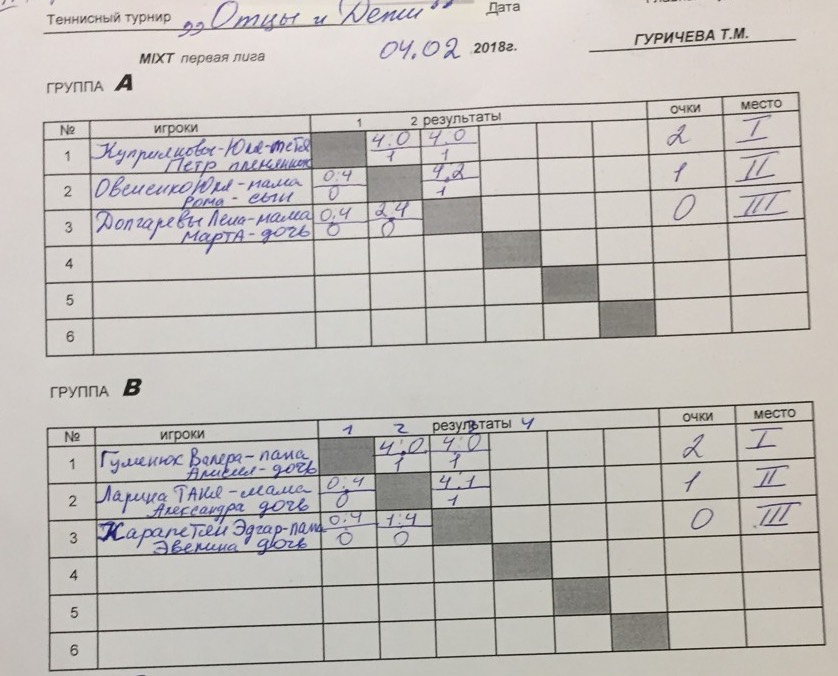 Теннисный турнир „Отцы и Дети" Дата
MIXT первая лига 04.02 2018г. ГУРИЧЕВА Т.М.
ГРУППА А
№ игроки 1 2 результаты очки место
1 Куприяновы-Юля-тётя 4:0 4:0 2 I
Петр племянник 1 1
2 Овсиенко Юля-мама 0:4 4:2 1 II
Рома-сын 0 1
3 Долгаревы Лена-мама 0:4 2:4 0 III
Марта-дочь 0 0
4
5
6
ГРУППА В
№ игроки 1 2 результаты 4 очки место
1 Гуменюк Валера-папа 4:0 4:0 2 I
дочь 1 1
2 Ларина Таня-мама 0:4 4:1 1 II
Александра дочь 0 1
3 Карапетян Эдгар-папа 0:4 1:4 0 III
Эвелина дочь 0 0
4
5
6